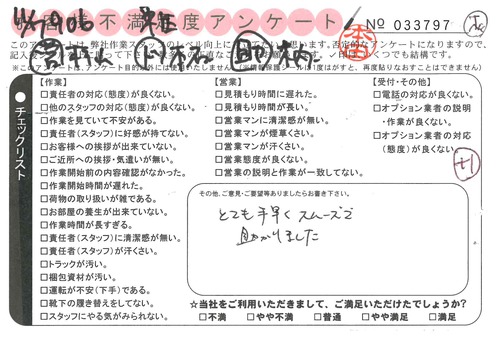 11/29 06
不満度アンケート
No 033797
チェックリスト
【作業】
□責任者の対応(態度)が良くない。
□他のスタッフの対応(態度)が良くない。
□作業を見ていて不安がある。
□責任者(スタッフ)に好感が持てない。
□お客様への挨拶が出来ていない。
□ご近所への挨拶・気遣いが無い。
□作業開始前の内容確認がなかった。
□作業開始時間が遅れた。
□荷物の取り扱いが雑である。
□お部屋の養生が出来ていない。
□作業時間が長すぎる。
□責任者(スタッフ)に清潔感が無い。
□責任者(スタッフ)が汗くさい。
□トラックが汚い。
□梱包資材が汚い。
□運転が不安(下手)である。
□靴下の履き替えをしてない。
□スタッフにやる気がみられない。
【営業】
□見積もり時間に遅れた。
□見積もり時間が長い。
□営業マンに清潔感が無い。
□営業マンが煙草くさい。
□営業マンが汗くさい。
□営業態度が良くない。
□営業の説明と作業が一致してない。
【受付・その他】
□電話の対応が良くない。
□オプション業者の説明
・作業が良くない。
□オプション業者の対応
(態度)が良くない。
その他、ご意見・ご要望等ありましたらお書き下さい。
とても手早くスムーズで
助かりました
☆当社をご利用いただきまして、ご満足いただけたでしょうか?
□不満 □やや不満 □普通 □やや満足 □満足